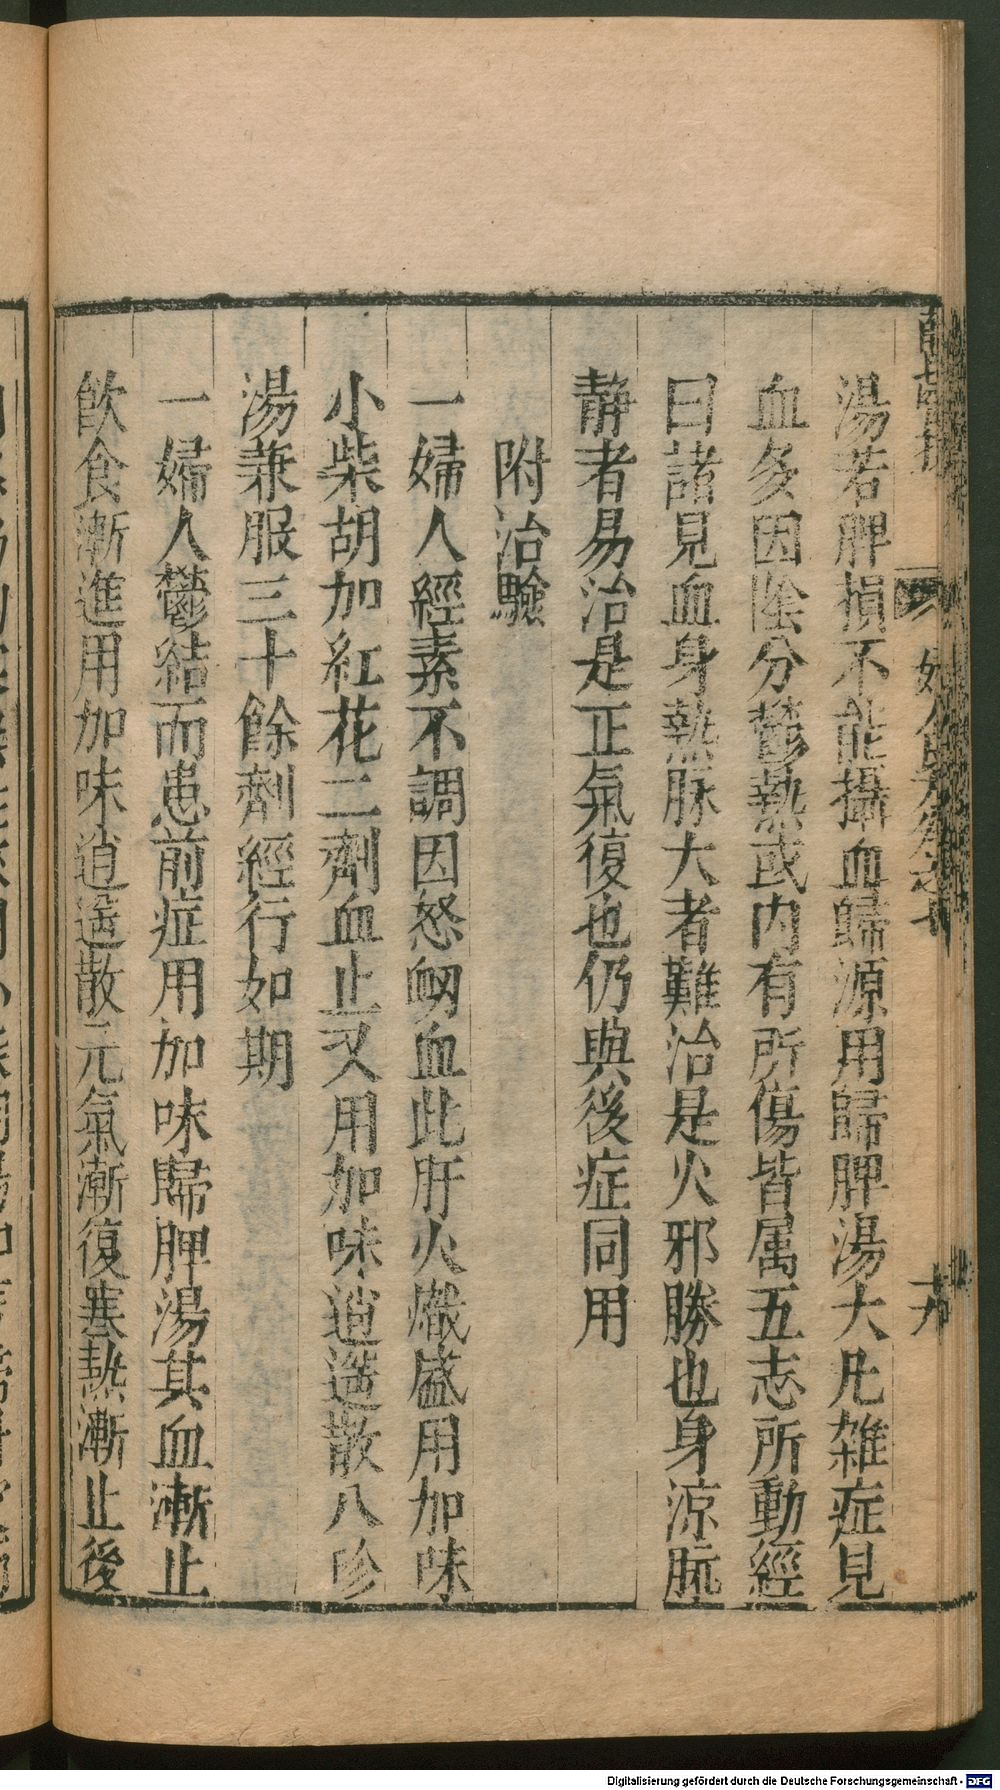 湯若脾損不能攝血歸源用歸脾湯大凡雑症見
血多因陰分鬱熱或内有所傷皆属五志所動經
曰諸見血身熱脉大者難治是火邪勝也身涼脉
靜者易治是正氣復也仍與後症同用
附治驗
一婦人經素不調因怒衂血此肝火熾盛用加味
小柴胡加紅花二劑血止又用加味逍遥散八珍
湯兼服三十餘劑經行如期
一婦人鬱結而患前症用加味歸脾湯其血漸止
飲食漸進用加味逍遥散元氣漸復寒熱漸止後
Digitalisierung gefördert durch die Deutsche Forschungsgemeinschaft - DFG